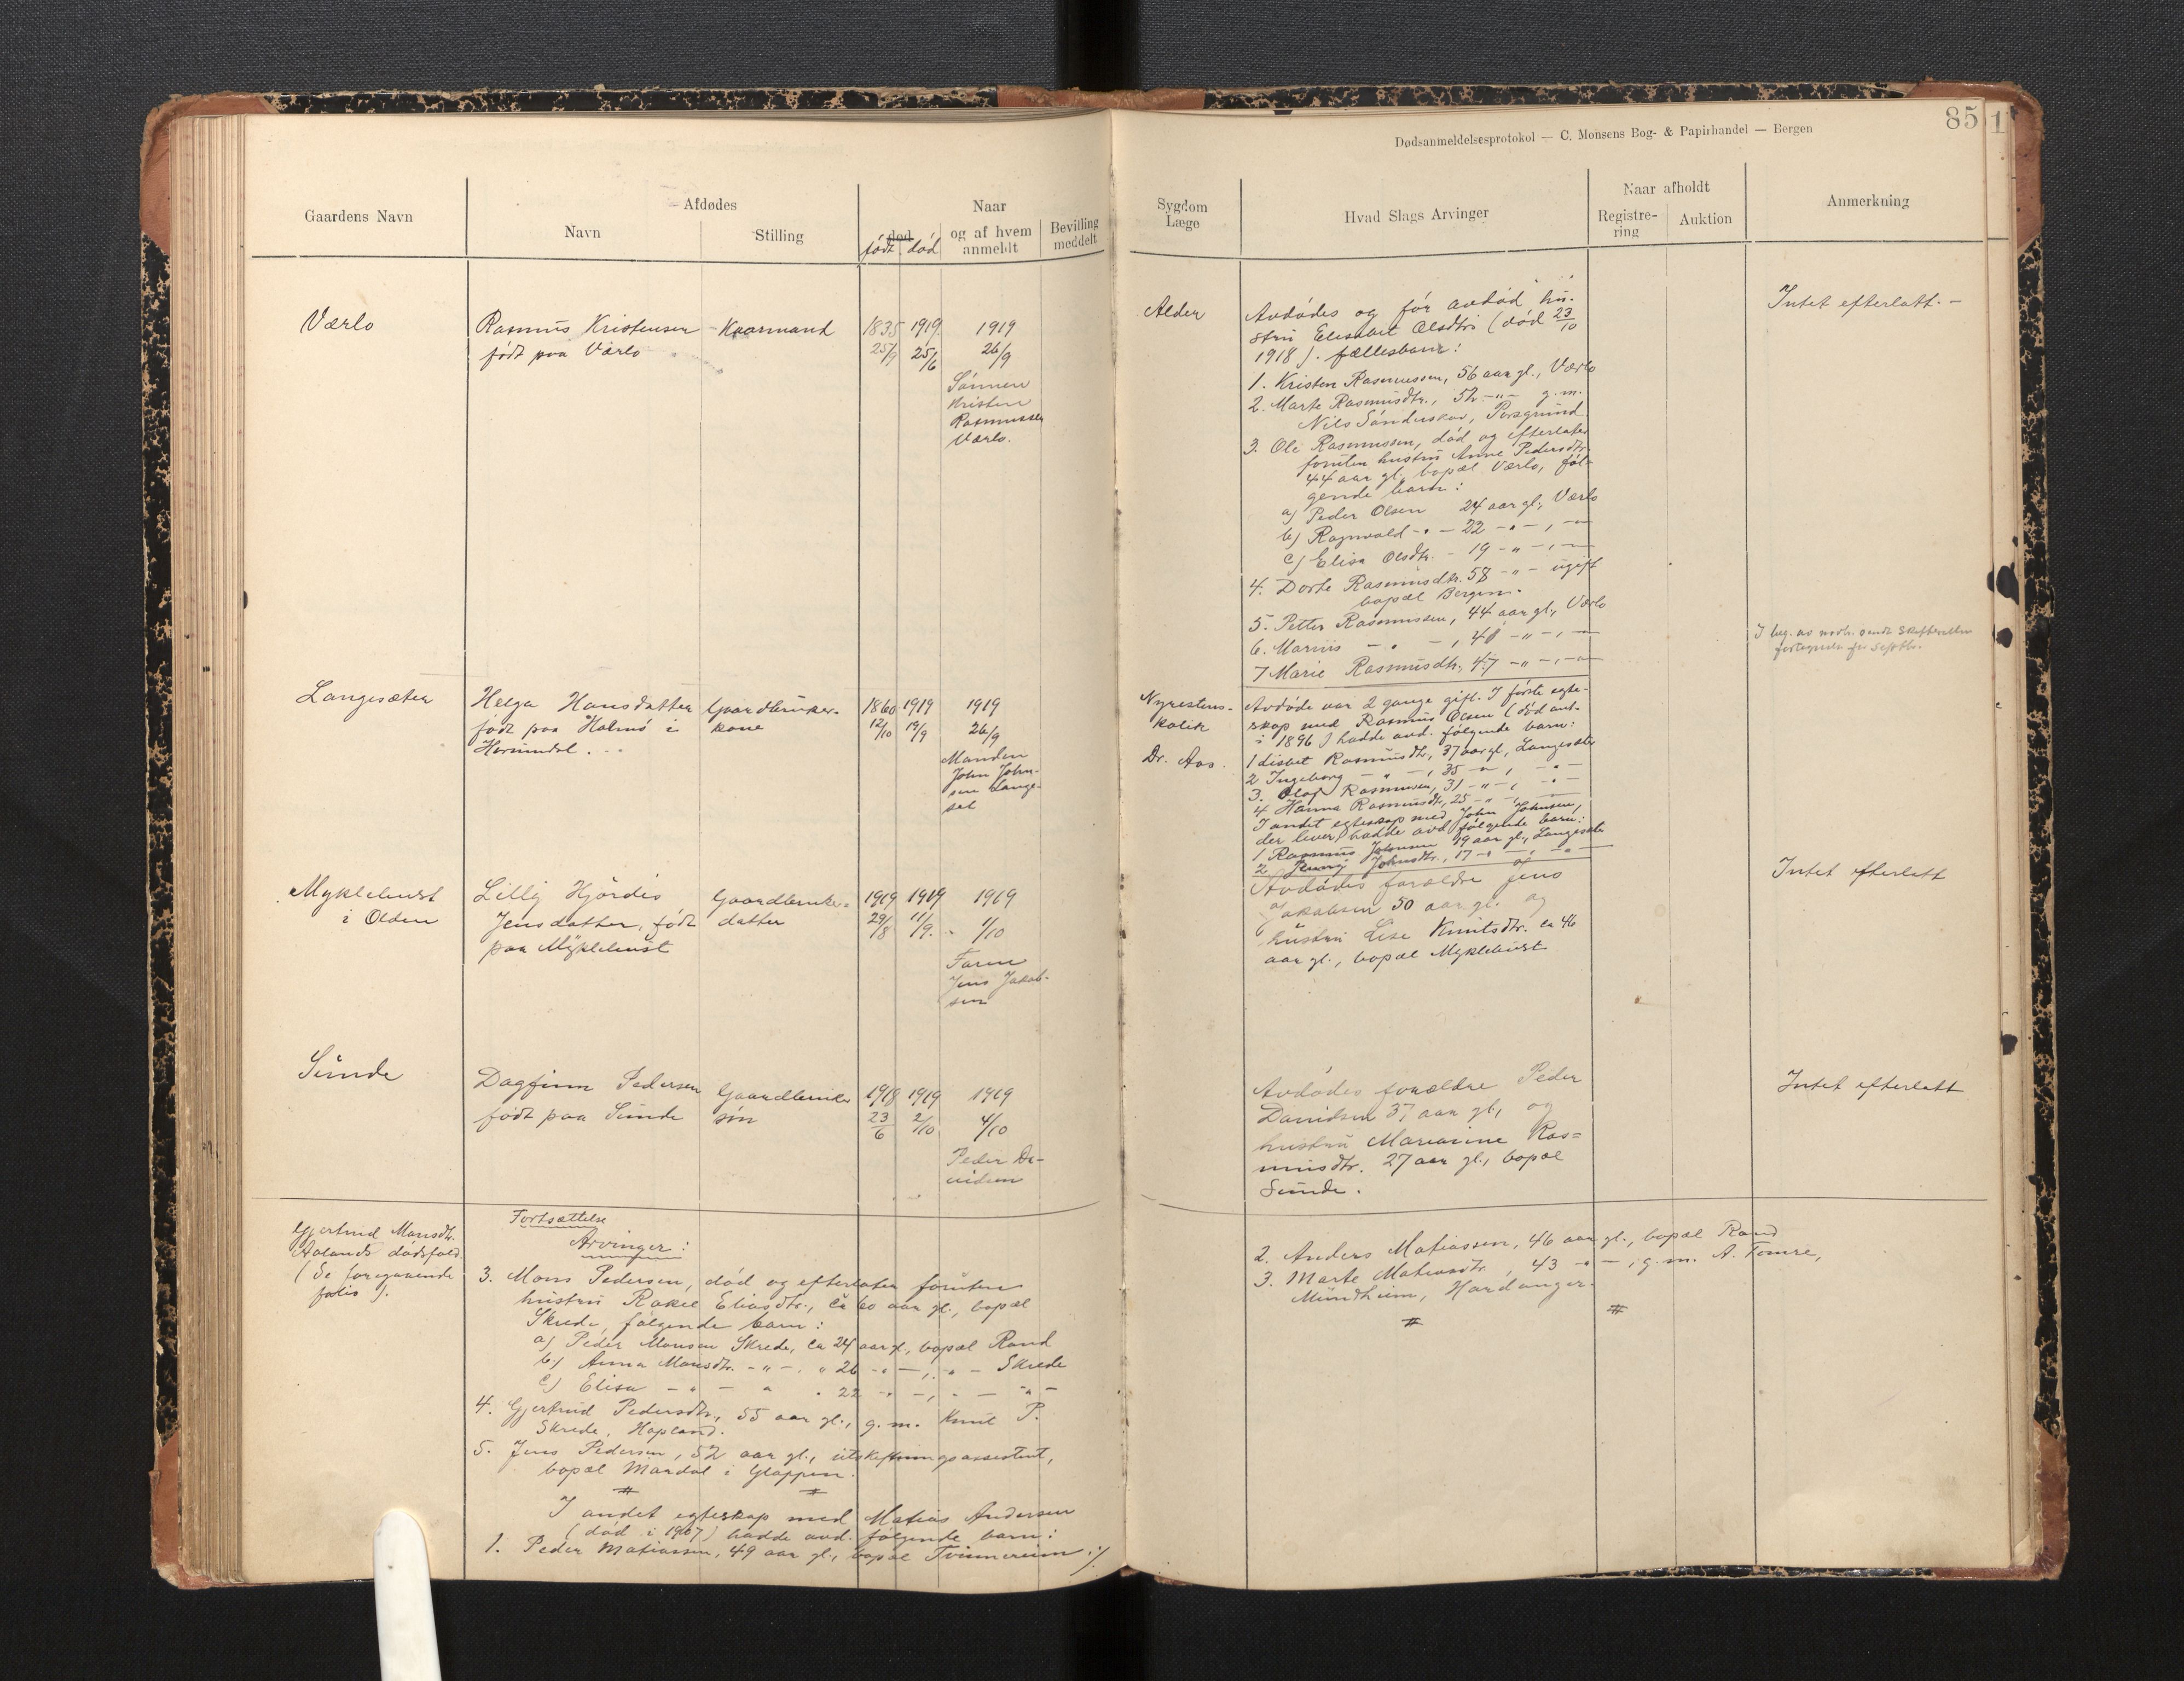 85
1
Dødsanmeldelsesprotokol — C. Monsens Bog- & Papirhandel — Bergen
Gaardens Navn
Afdødes
Navn
Stilling
Naar
død
født
død
og af hvem
anmeldt
Bevilling
meddelt
Sygdom
Læge
Hvad Slags Arvinger
Naar afholdt
Registre-
ring
Auktion
Anmerkning
Værlo
Rasmus Kristensen
født paa Værlo
Kaarmand
1835
25/9
1919
25/6
1919
26/9
Sønnen
Kristen
Rasmussen
Værlo.
Alder
Avdødes og før avdød hu-
stru Elisabet Olsdtr (død 23/10
1918). fællesbarn:
1. Kristen Rasmussen, 56 aar gl., Værlo
2. Marte Rasmusdtr., 52 -"- g.m.
Nils Sønderskov, Porsgrund
3. Ole Rasmussen, død og efterlater
foruten hustru Anne Pedersdtr
44 aar gl., bopæl Værlo, føl-
gende barn:
a) Peder Olsen 24 aar gl., Værlo
b) Ragnvald -"- 22 -"-, -"-
c) Elisa Olsdtr. - 19 -"-, -"-
4. Dorte Rasmusdtr. 58 -"- ugift
bopæl Bergen.
5. Petter Rasmussen, 44 aar gl., Værlo
6. Marius -"-, 40 -"-, -"-
7 Marie Rasmusdtr., 47 -"-, -"-
Intet efterlatt. -
Langesæter
Helga Hansdatter
født paa Holmø i
Hornindal.
Gaardbruker-
kone
1860
12/10
1919
19/9
1919
26/9
Manden
John John-
sen Lange-
set
Nyrestens-
kolik
Dr. Aas.
Avdøde var 2 gange gift. I første egte-
skap med Rasmus Olsen (død
i 1896) hadde avd. følgende barn:
1 Lisbet Rasmusdtr, 37 aar gl., Langesæter
2 Ingeborg -"-, 35 -"-, -"-
3. Olaf Rasmussen, 31 -"-, -"-
4 Hanna Rasmusdtr, 25 -"-, -"-
I andet egteskap med John Johnsen,
der lever, hadde avd. følgende barn:
1 Rasmus Johnsen 19 aar gl., Langesæter
2 Jenny Johnsdtr., 17 -"-, -"-
Myklebust
i Olden
Lilly Hjørdis
Jensdatter, født
paa Myklebust
Gaardbruker-
datter
1919
29/8
1919
11/9.
1919
1/10
Faren
Jens Jakob-
sen
Avdødes forældre Jens
Jakobsen 50 aar gl. og
hustru Lise Knutsdtr. ca 46
aar gl., bopæl Myklebust
Intet efterlatt
Sunde
Dagfinn Pedersen
født paa Sunde
Gaardbruker
søn
1918
23/6
1919
2/10
1919
4/10
Peder Da-
vidsen
Avdødes forældre Peder
Davidsen 37 aar gl., og
hustru Marianne Ras=
musdtr. 27 aar gl., bopæl
Sunde.
Intet efterlatt
Gjertrud Monsdtr.
Aalands dødsfald
(Se foregaaende
folio).
Fortsættelse
Arvinger:
3. Mons Pedersen, død og efterlater foruten
hustru Rakel Eliasdtr., ca 60 aar gl., bopæl
Skrede, følgende barn:
a) Peder Monsen Skrede, ca 24 aar gl., bopæl Rand
b) Anna Monsdtr. -"-, " 26 -"-, -"- Skrede
c) Elisa -"- " " 22 -"-, -"- -"-
4. Gjertrud Pedersdtr., 55 aar gl., g.m. Knut P.
Skrede, Hopland.
5. Jens Pedersen, 52 aar gl., utskiftningsassistent,
bopæl Mardal i Gloppen.
I andet egteskap med Matias Andersen
(død i 1907) hadde avd. følgende barn:
1. Peder Matiassen, 49 aar gl., bopæl Tvinnereim ./.
2. Anders Matiassen, 46 aar gl., bopæl Rand
3. Marte Matiasdtr, 43 -"-, g.m. A. Tomre,
Mundheim, Hardanger.